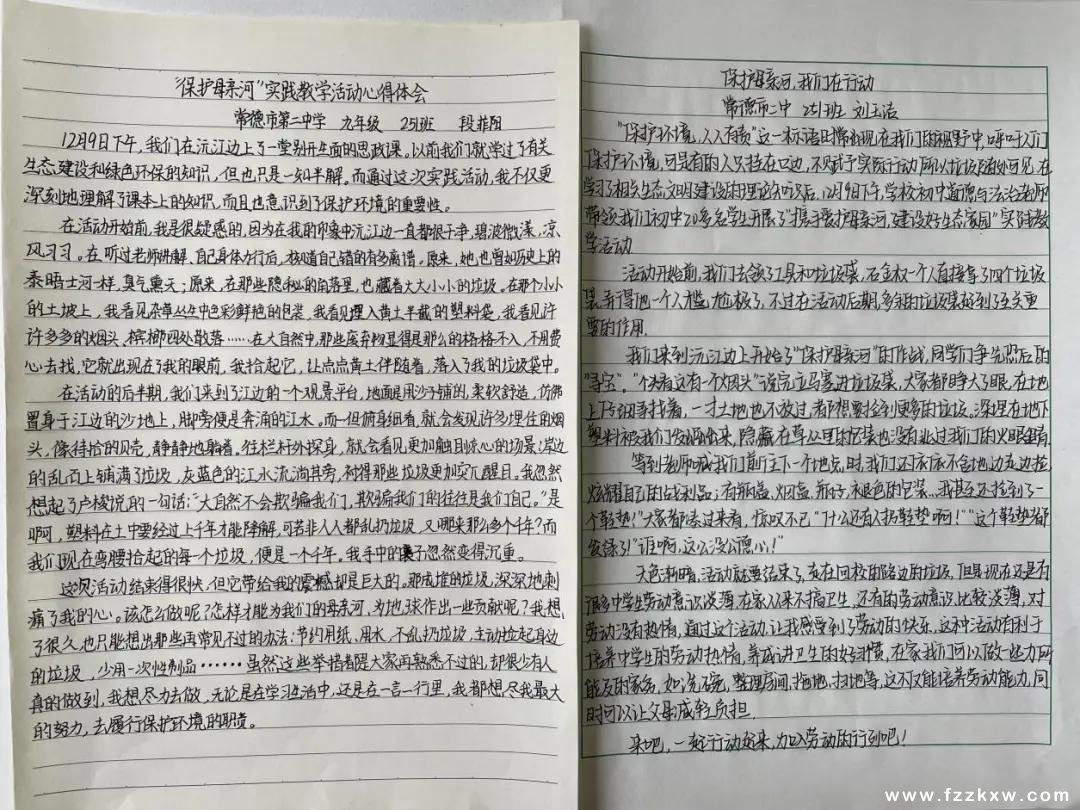 “保护母亲河”实践教学活动心得体会
常德市第二中学 九年级 251班 段菲阳
12月9日下午，我们在沅江边上了一堂别开生面的思政课。以前我们就学过了有关
生态建设和绿色环保的知识，但也只是一知半解。而通过这次实践活动，我不仅更
深刻地理解了课本上的知识，而且也意识到了保护环境的重要性。
在活动开始前，我是很疑惑的，因为在我的印象中沅江边一直都很干净，碧波微漾，凉
风习习。在听过老师讲解、自己身体力行后，才知道自己错的有多离谱。原来，她也曾如历史上的
泰晤士河一样，臭气熏天；原来，在那些隐秘的角落里，也藏着大大小小的垃圾。在那个小小
的土坡上，我看见杂草丛生中色彩鲜艳的包装，我看见埋入黄土半截的塑料袋，我看见许
许多多的烟头、槟榔四处散落……在大自然中，那些废弃物显得是那么的格格不入，不用费
心去找，它就出现在了我的眼前，我拾起它，让点点黄土伴随着，落入了我的垃圾袋中。
在活动的后半期，我们来到了江边的一个观景平台，地面是用沙子铺的，柔软舒适，仿佛
置身于江边的沙地上，脚旁便是奔涌的江水。而一但俯身细看，就会发现许多埋住的烟
头，像待拾的贝壳，静静地躺着。往栏杆外探身，就会看见更加触目惊心的场景：岸边
的乱石上铺满了垃圾，灰蓝色的江水流淌其旁，衬得那些垃圾更加突兀醒目。我忽然
想起了卢梭说的一句话：“大自然不会欺骗我们，欺骗我们的往往是我们自己。”是
啊，塑料在土中要经过上千年才能降解，可若非人人都乱扔垃圾，又哪来那么多个千年？而
我们现在弯腰拾起的每一个垃圾，便是一个千年。我手中的袋子忽然变得沉重。
这次活动结束得很快，但它带给我的震撼却是巨大的。那成堆的垃圾，深深地刺
痛了我的心。该怎么做呢？怎样才能为我们的母亲河，为地球作出一些贡献呢？我想
了很久，也只能想出那些再常见不过的办法：节约用纸、用水，不乱扔垃圾，主动捡起身边
的垃圾，少用一次性制品……虽然这些举措都是大家再熟悉不过的，却很少有人
真的做到，我想尽力去做，无论是在学习生活中，还是在一言一行里，我都想尽我最大
的努力，去履行保护环境的职责。
保护母亲河，我们在行动
常德市二中 251班 刘玉洁
“保护环境，人人有责”这一标语时常出现在我们的视野中，呼吁人们
保护环境，可是有的人只挂在口边，不赋予实践行动所以垃圾随处可见，在
学习了相关生态文明建设的理论知识后，12月9日下午，学校初中道德与法治老师
带领我们初中20多名学生开展了“携手护母亲河，建设好生态家园”实践教
学活动
活动开始前，我们去领了工具和垃圾袋，石金权一个人直接拿了四个垃圾
袋，弄得他一个人尴尬极了，不过在活动后期，多余的垃圾袋起到了至关重
要的作用.
我们来到沅江边上开始了“保护母亲河”的作战，同学们争先恐后的
“寻宝”。“快看这有一个烟头”说完立马塞进垃圾袋，大家都睁大了眼，在地
上仔细寻找着，一寸土地也不放过，都想要捡到更多的垃圾，深埋在地下
塑料被我们发掘出来，隐藏在草丛里的包装也没有逃过我们的火眼金睛.
等到老师喊我们前往下一个地点时，我们还依依不舍地边走边捡
炫耀自己的战利品：有瓶盖、烟盒、瓶子、褪色的包装…我甚至还捡到了一
个鞋垫！”大家都凑过来看，惊叹不已“什么还有人扔鞋垫啊！”“这个鞋垫都
发绿了！”“谁啊，这么没公德心！”
天色渐暗，活动就要结束了，走在回校的路边的垃圾，但是现在还是有
很多中学生劳动意识淡薄，在家从来不搞卫生，还有的劳动意识比较淡薄，对
劳动没有热情，通过这个活动，让我感受到了劳动的快乐，这种活动有利于
培养中学生的劳动热情，养成讲卫生的好习惯，在家我们可以做一些力所
能及的家务，如洗碗，整理房间，拖地，扫地等，这不仅能培养劳动能力，同
时可以让父母减轻负担.
来吧，一起行动起来，加入劳动的行列吧！
www.fzzkxw.com